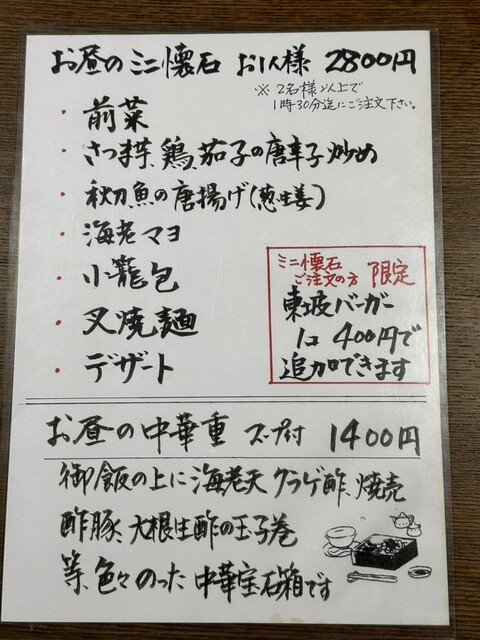 お昼のミニ懐石 お1人様 2800円
※ 2名様以上で
1時30分迄にご注文下さい。
・前菜
・さつま芋、鶏、茄子の唐辛子炒め
・秋刀魚の唐揚げ(葱生姜)
・海老マヨ
・小籠包
・叉焼麺
・デザート
ミニ懐石
ご注文の方 限定
東坡バーガー
1コ 400円で
追加できます
お昼の中華重 スープ付 1400円
御飯の上に海老天、クラゲ酢、焼売
酢豚、大根生酢の玉子巻
等、色々のった中華宝石箱です